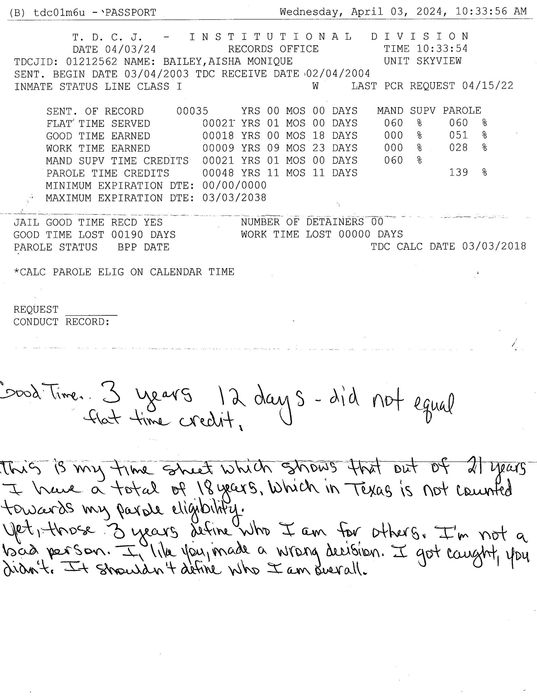 (B) tdc01m6u - PASSPORT Wednesday, April 03, 2024, 10:33:56 AM
T. D. C. J. - I N S T I T U T I O N A L D I V I S I O N
DATE 04/03/24 RECORDS OFFICE TIME 10:33:54
TDCJID: 01212562 NAME: BAILEY,AISHA MONIQUE UNIT SKYVIEW
SENT. BEGIN DATE 03/04/2003 TDC RECEIVE DATE 02/04/2004
INMATE STATUS LINE CLASS I W LAST PCR REQUEST 04/15/22
SENT. OF RECORD 00035 YRS 00 MOS 00 DAYS MAND SUPV PAROLE
FLAT TIME SERVED 00021 YRS 01 MOS 00 DAYS 060 % 060 %
GOOD TIME EARNED 00018 YRS 00 MOS 18 DAYS 000 % 051 %
WORK TIME EARNED 00009 YRS 09 MOS 23 DAYS 000 % 028 %
MAND SUPV TIME CREDITS 00021 YRS 01 MOS 00 DAYS 060 %
PAROLE TIME CREDITS 00048 YRS 11 MOS 11 DAYS 139 %
MINIMUM EXPIRATION DTE: 00/00/0000
MAXIMUM EXPIRATION DTE: 03/03/2038
JAIL GOOD TIME RECD YES NUMBER OF DETAINERS 00
GOOD TIME LOST 00190 DAYS WORK TIME LOST 00000 DAYS
PAROLE STATUS BPP DATE TDC CALC DATE 03/03/2018
*CALC PAROLE ELIG ON CALENDAR TIME
REQUEST ________
CONDUCT RECORD:
Good Time.. 3 years 12 days - did not equal
flat time credit.
This is my time sheet which shows that out of 21 years
I have a total of 18 years. Which in Texas is not counted
towards my parole eligibility.
Yet, those 3 years define who I am for others. I'm not a
bad person. I, like you, made a wrong decision. I got caught, you
didn't. It shouldn't define who I am overall.